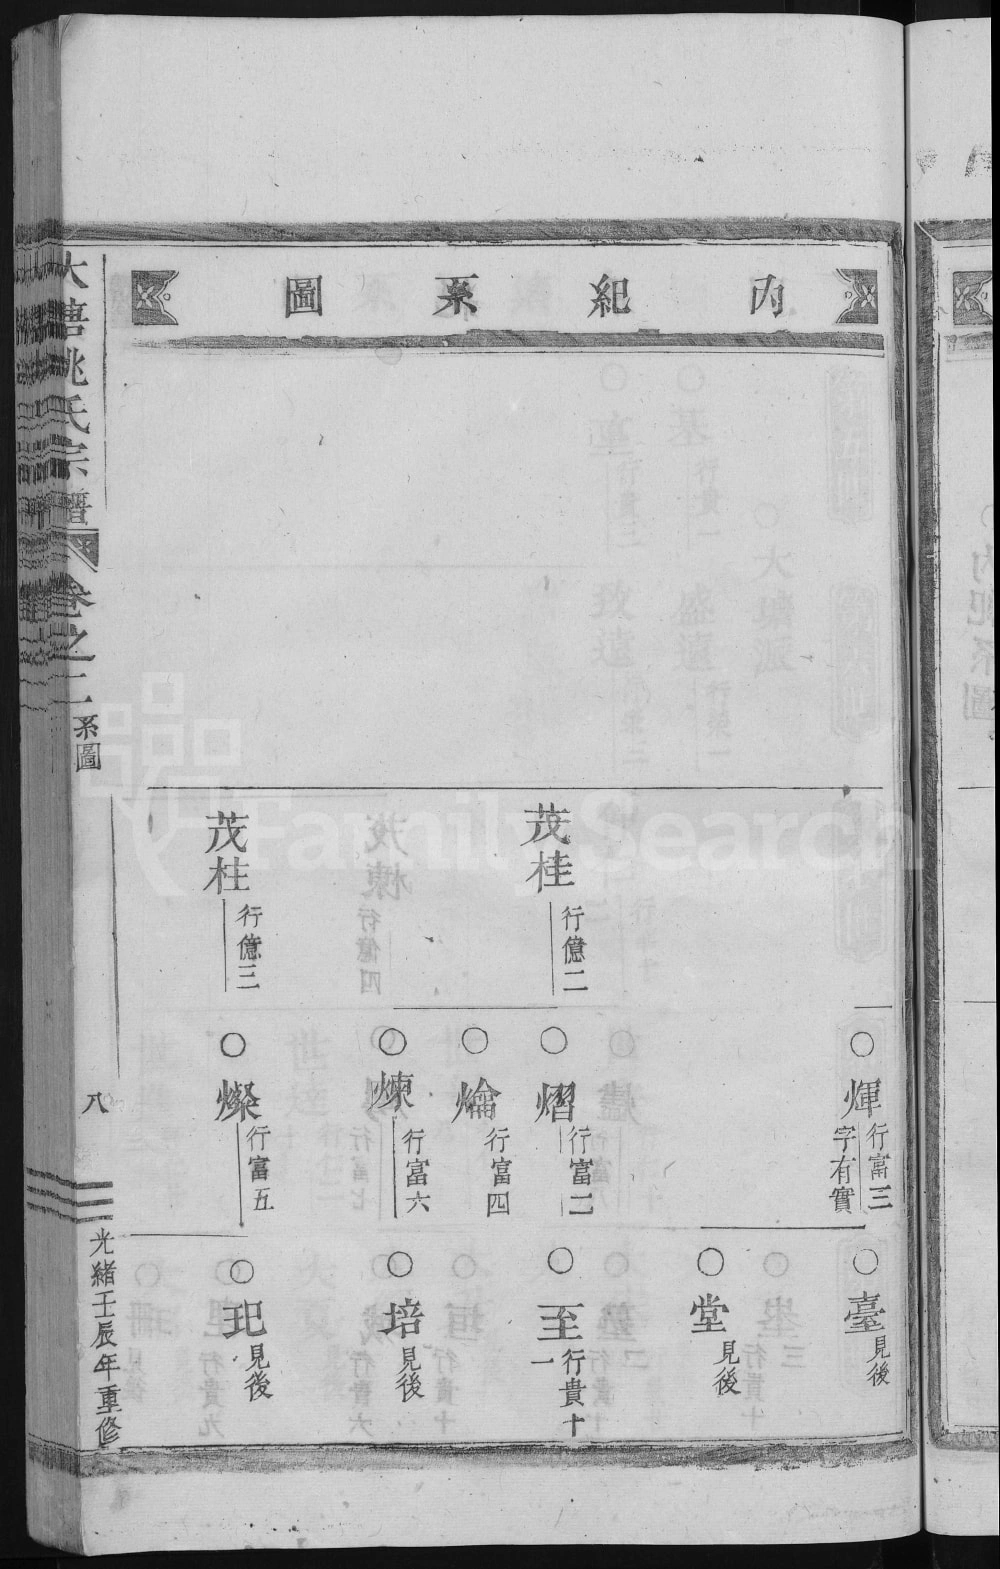 內紀系圖
茂桂
行億二
茂柱
行億三
煇
行富三
字有實
熠
行富二
爚
行富四
煉
行富六
燦
行富五
臺
見後
堂
見後
至
行貴十
一
培
見後
玘
見後
姚氏宗譜
卷之二
系圖
八
光緒壬辰年重修
FamilySearch